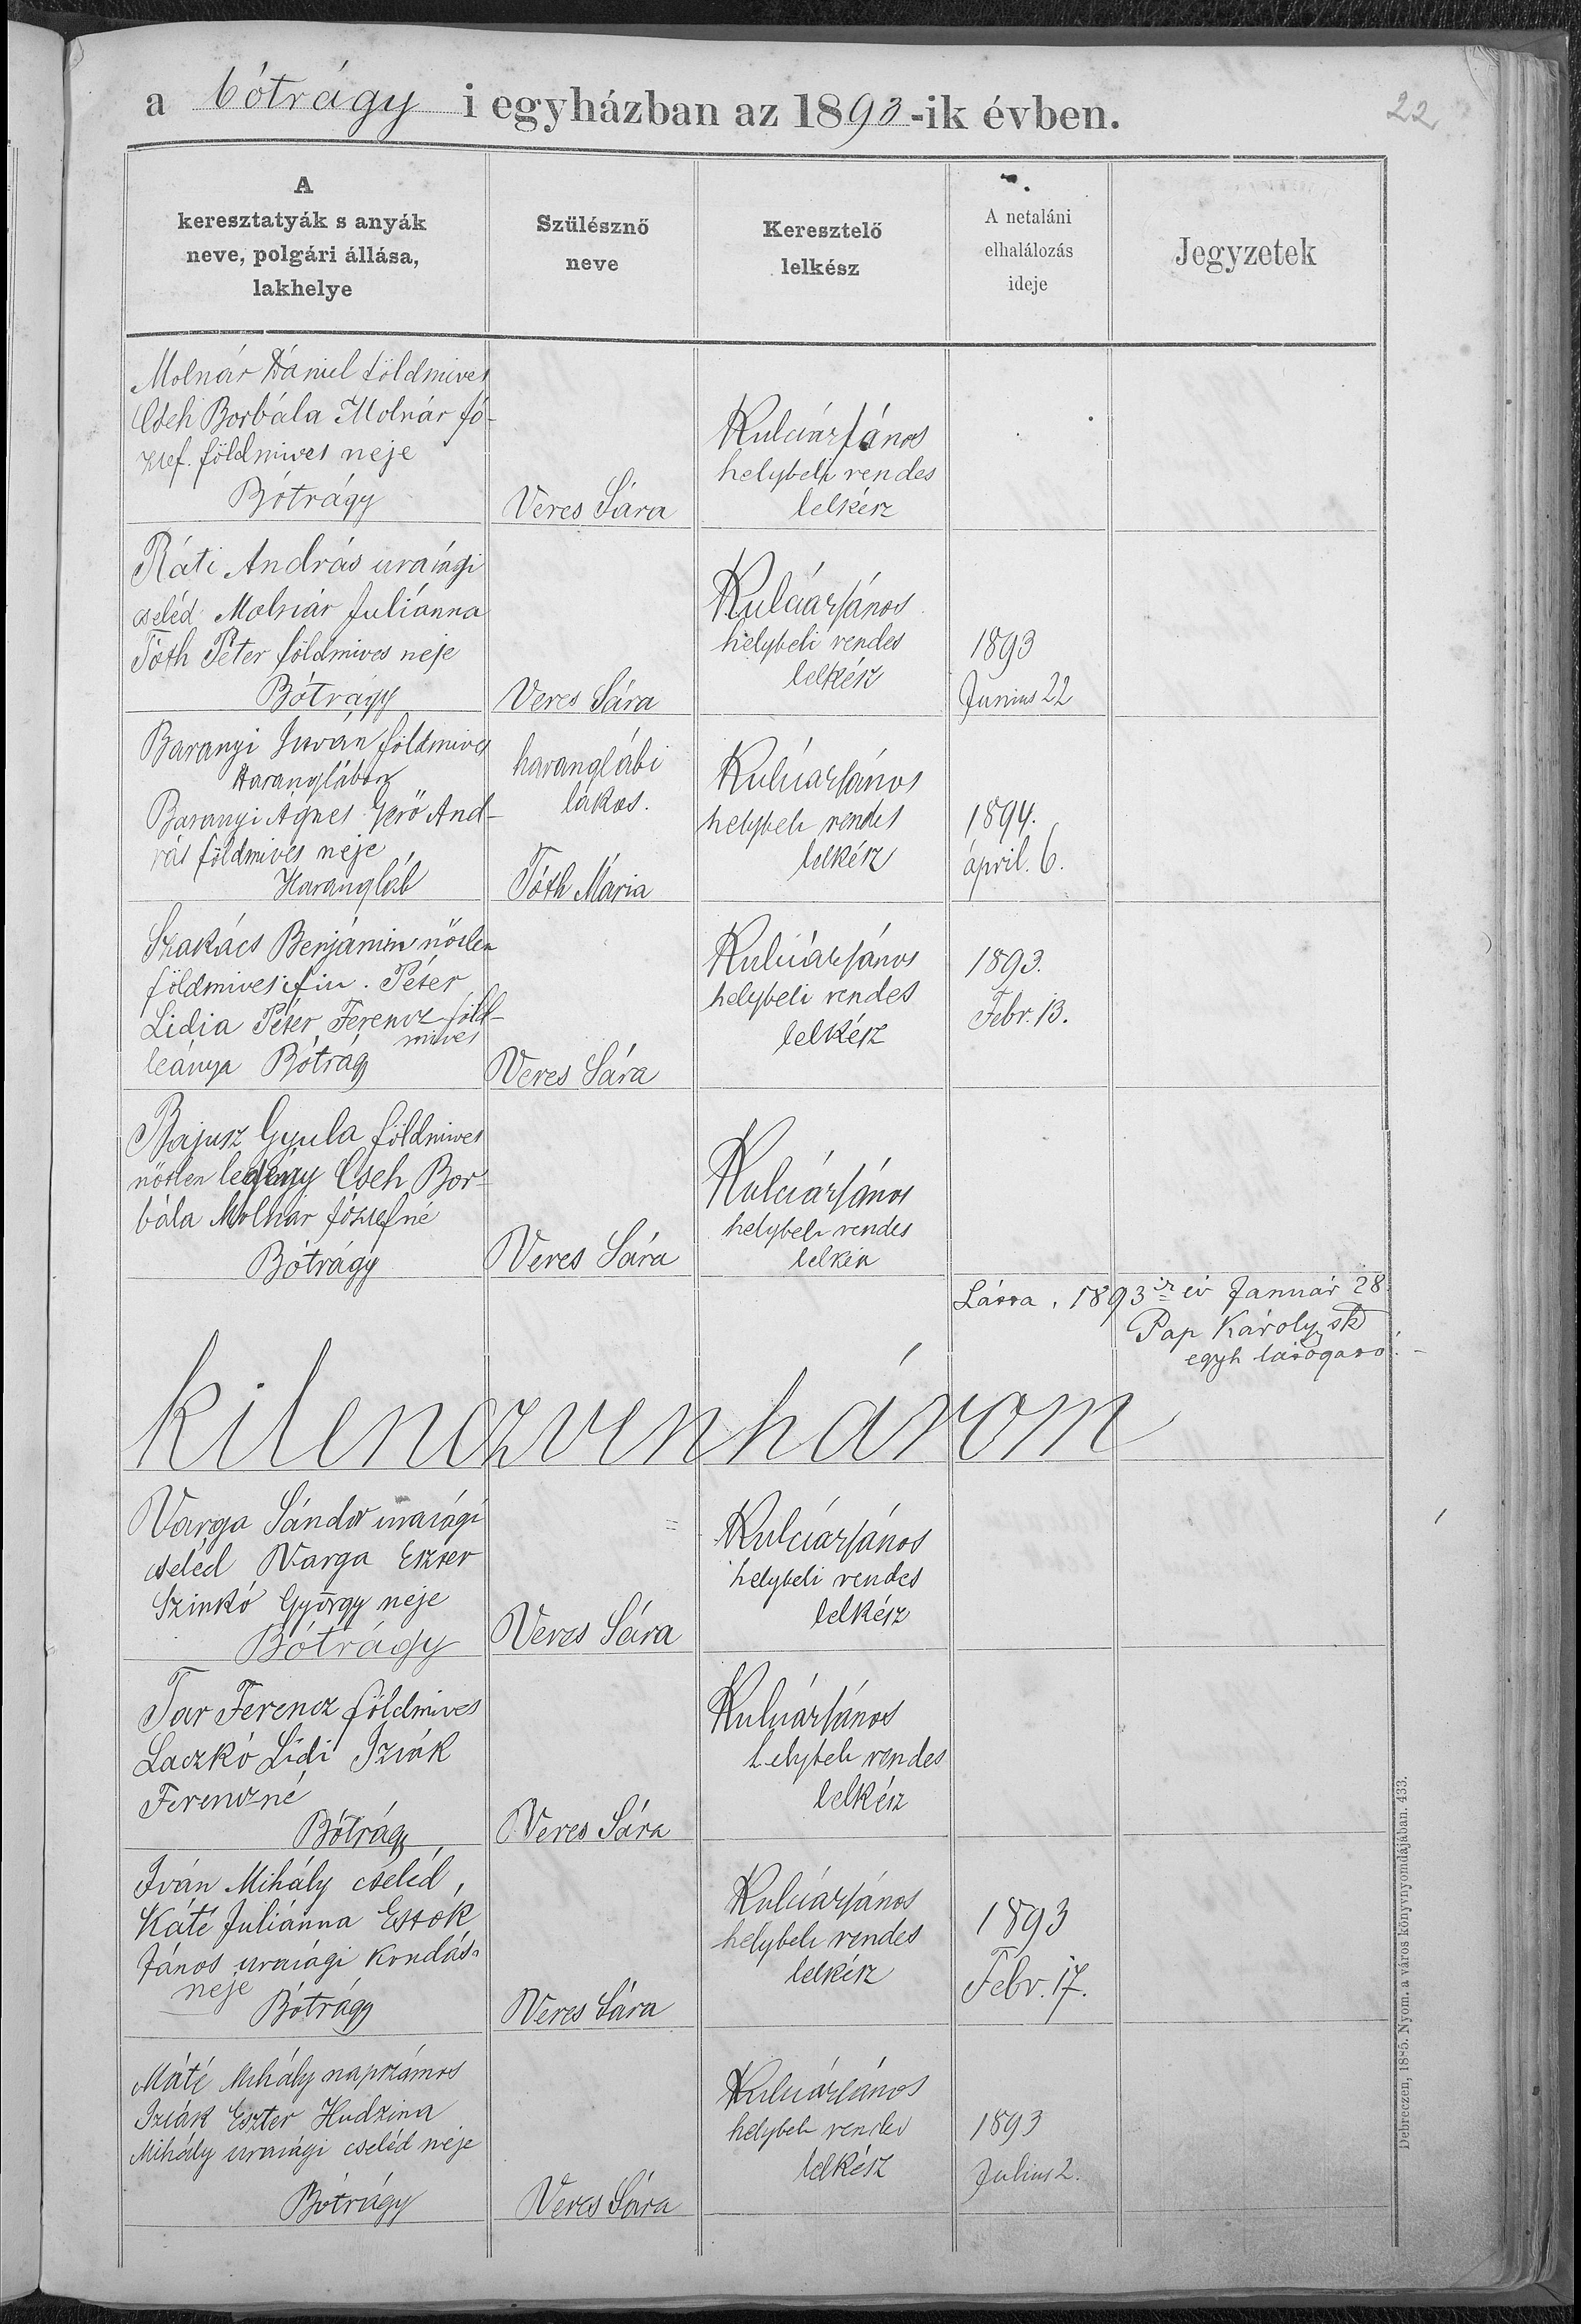 a bótrágy i egyházban az 1893-ik évben.
22
A
keresztatyák s anyák
neve, polgári állása,
lakhelye
Szülésznő
neve
Keresztelő
lelkész
A netaláni
elhalálozás
ideje
Jegyzetek
Molnár Dániel földmives
Cseh Borbála Molnár Jó-
zsef. földmives neje
Bótrágy
Veres Sára
Kulcsár János
helybeli rendes
lelkész
Ráti András urasági
cseléd Molnár Juliánna
Tóth Péter földmives neje
Bótrágy
Veres Sára
Kulcsár János
helybeli rendes
lelkész
1893
Junius 22
Baranyi István földmives
Haranglábon
Baranyi Ágnes Gerő And-
rás földmives neje
Harangláb
haranglábi
lakos.
Tóth Mária
Kulcsár János
helybeli rendes
lelkész
1894.
ápril. 6.
Szakács Benjámin nőtlen
földmives fiu. Péter
Lidia Péter Ferencz föld-
mives
leánya Bótrágy
Veres Sára
Kulcsár János
helybeli rendes
lelkész
1893.
Febr. 13.
Bajusz Gyula földmives
nőtlen legény Cseh Bor-
bála Molnár Józsefné
Bótrágy
Veres Sára
Kulcsár János
helybeli rendes
lelkész
Látta, 1893 ik év Január 28.
Pap Károly sk
egyh látogató.
kilenczvenhárom
Varga Sándor urasági
cseléd Varga Eszter
Szinkó György neje
Bótrágy
Veres Sára
Kulcsár János
helybeli rendes
lelkész
Tar Ferencz földmives
Laczkó Lidi Izsák
Ferenczné
Bótrágy
Veres Sára
Kulcsár János
helybeli rendes
lelkész
Iván Mihály cseléd,
Káté Juliánna Estók
János urasági kondás
neje
Bótrágy
Veres Sára
Kulcsár János
helybeli rendes
lelkész
1893
Febr. 17.
Máté Mihály napszámos
Izsák Eszter Hudzina
Mihály urasági cseléd neje
Bótrágy
Veres Sára
Kulcsár János
helybeli rendes
lelkész
1893
Julius 2.
Debreczen, 1885. Nyom. a város könyvnyomdájában. 433.